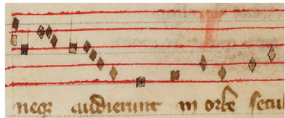 neqꝫ audierunt in orbe secul